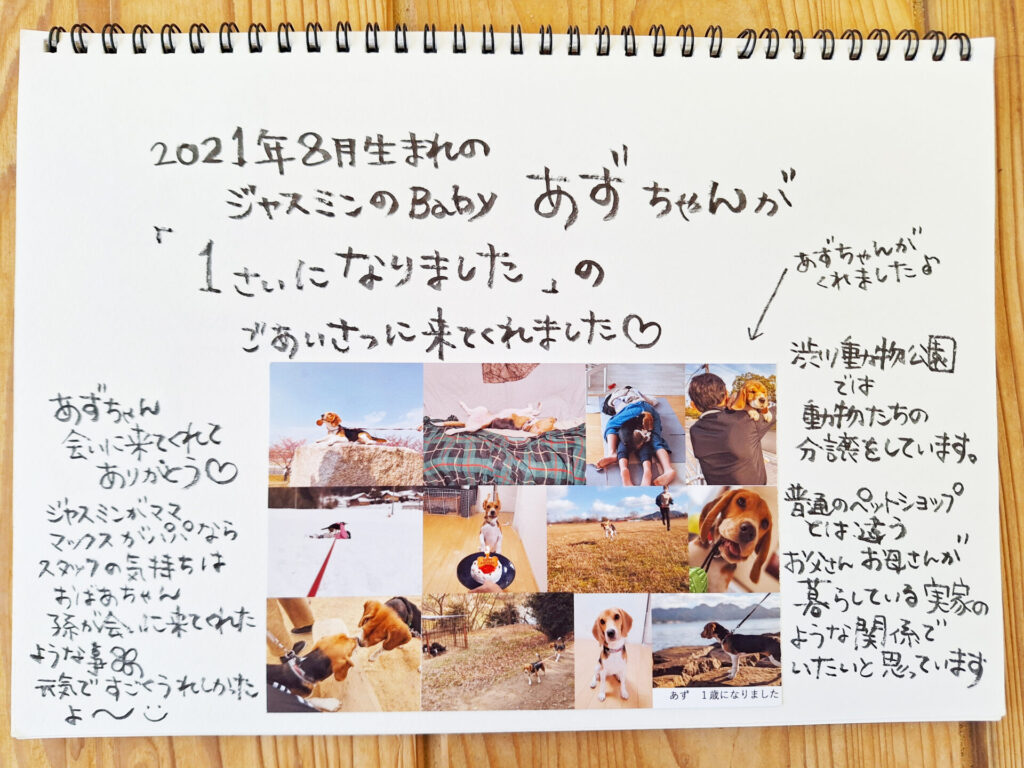 2021年8月生まれの
ジャスミンのBaby あずちゃんが
「1さいになりました」の
ごあいさつに来てくれました♡
あずちゃんが
くれました♪
あずちゃん
会いに来てくれて
ありがとう♡
ジャスミンがママ
マックスがパパなら
スタッフの気持ちは
おばあちゃん
孫が会いに来てくれた
ような事
元気ですごくうれしかった
よ〜
渋川動物公園
では
動物たちの
分譲をしています。
普通のペットショップ
とは違う
お父さんお母さんが
暮らしている実家の
ような関係で
いたいと思っています
あず 1歳になりました